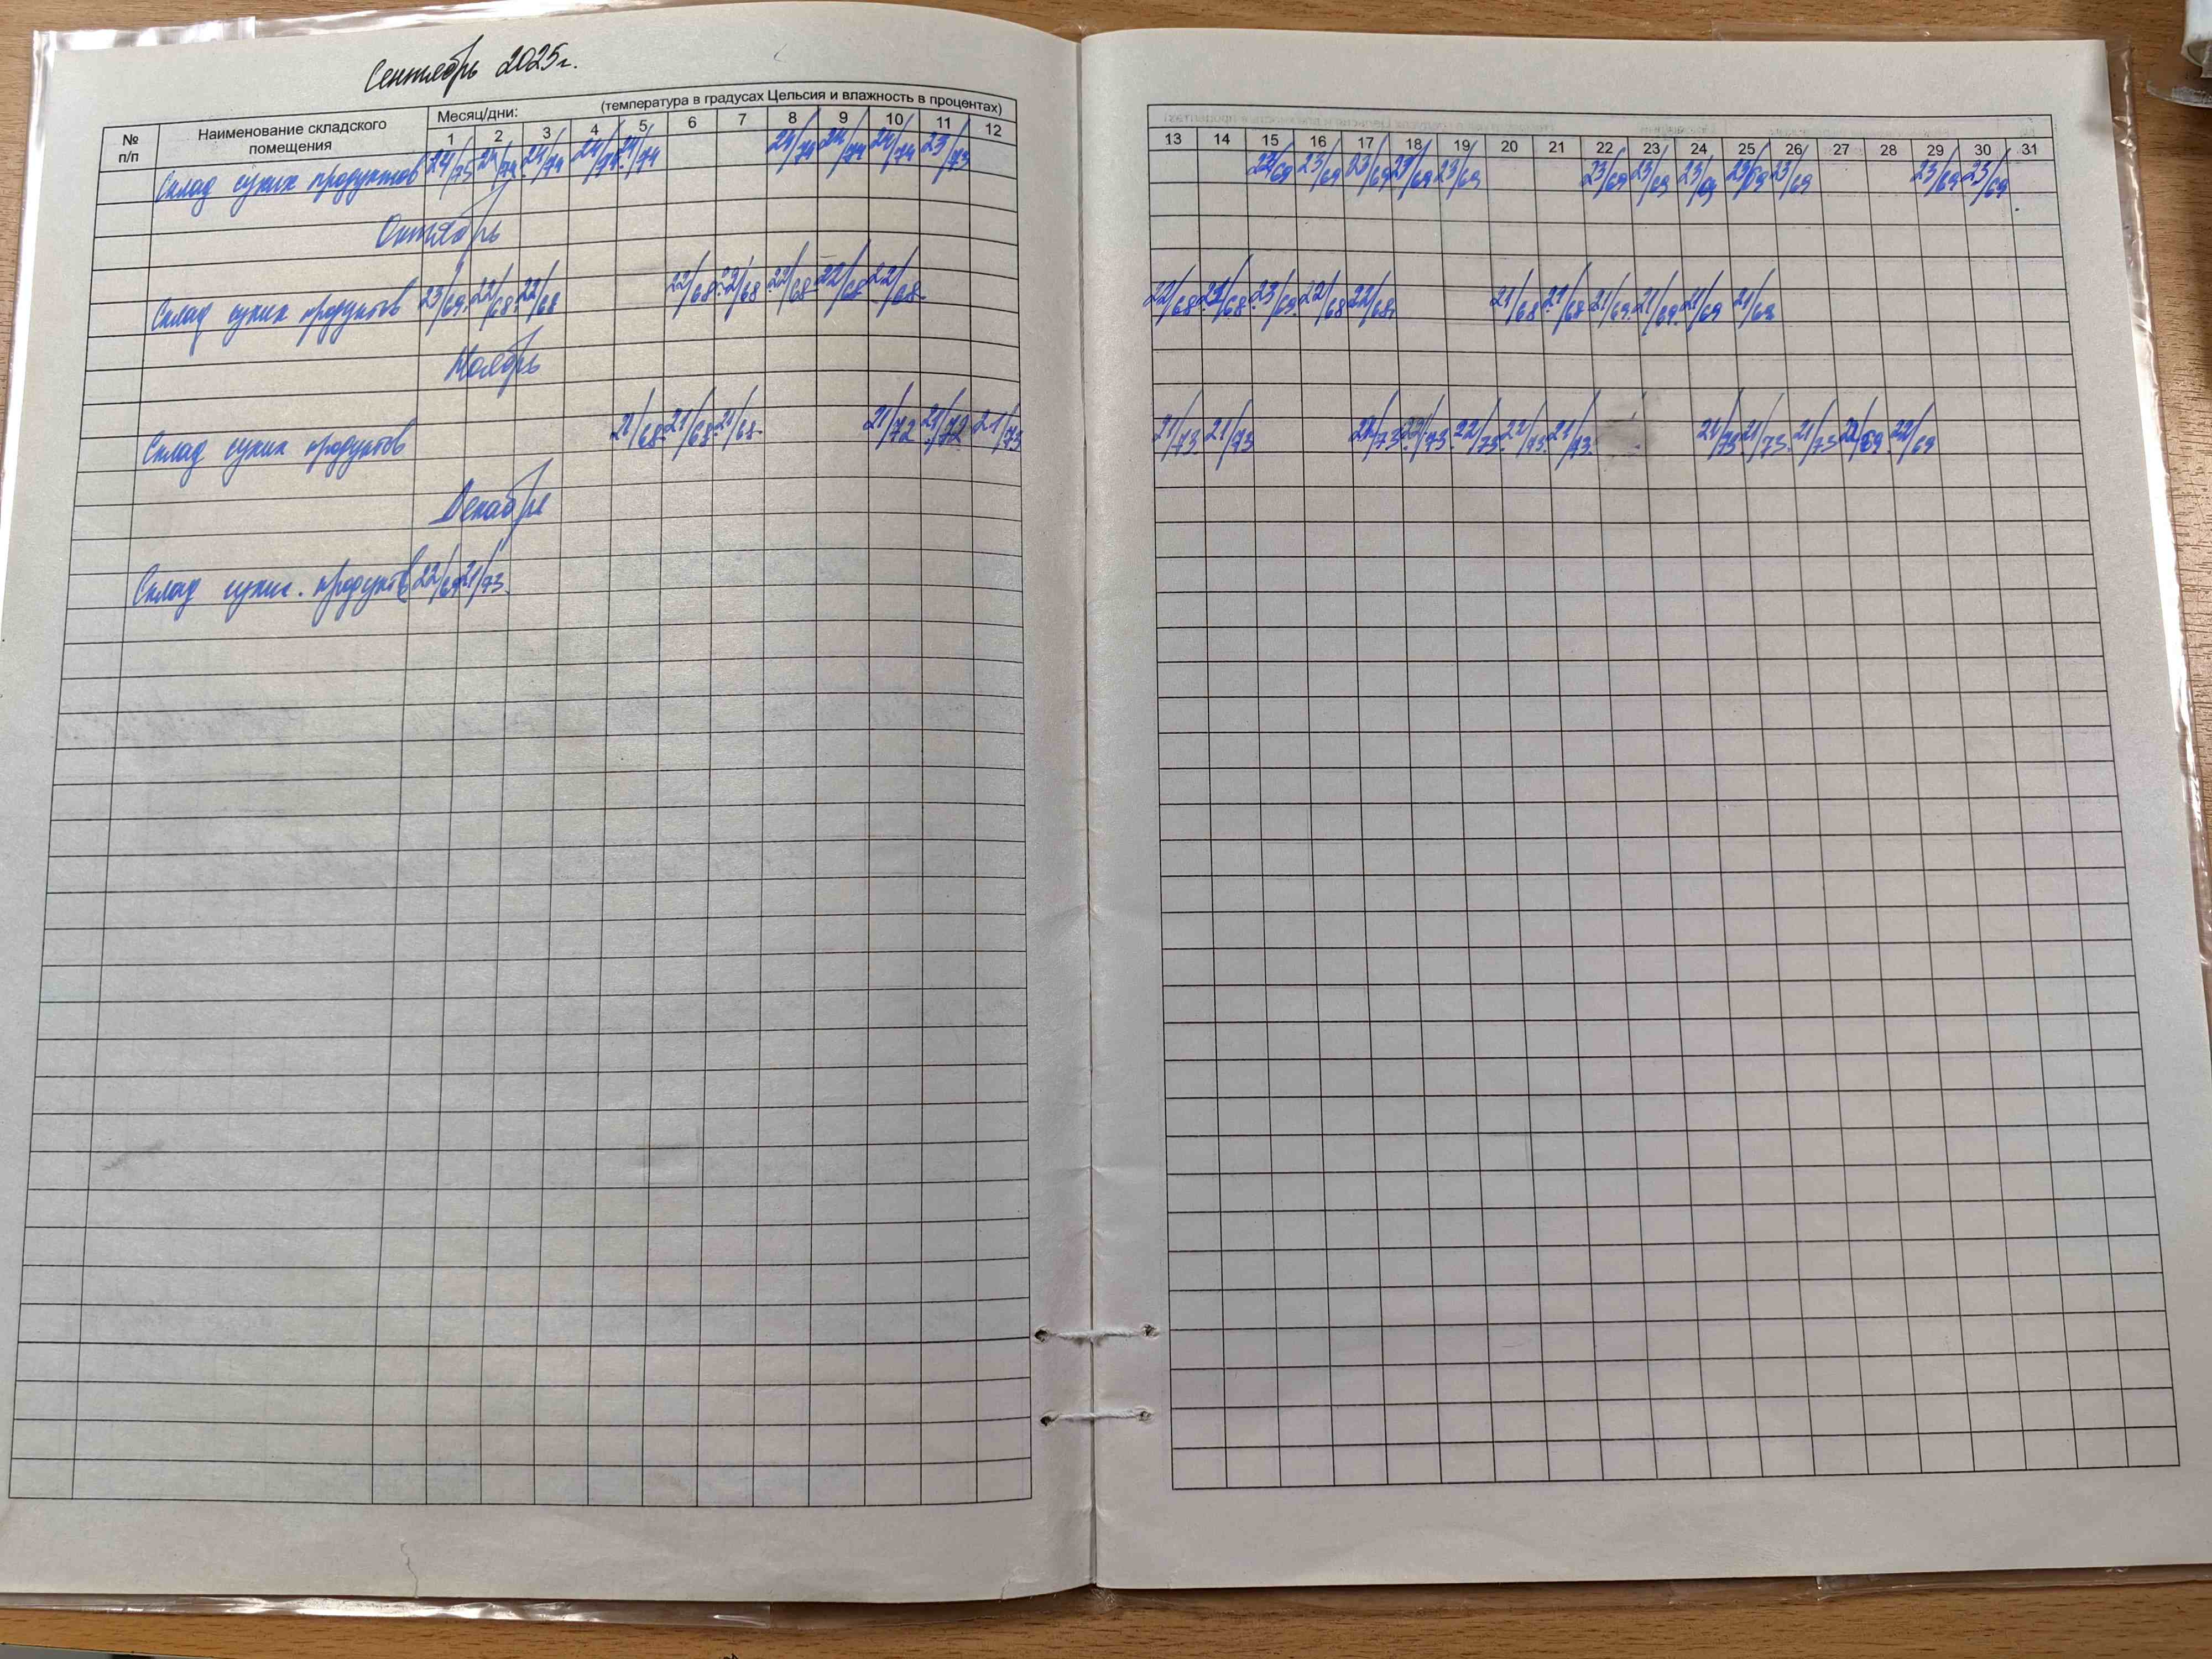 Сентябрь 2025г.
№ п/п Наименование складского помещения Месяц/дни: (температура в градусах Цельсия и влажность в процентах)
1 2 3 4 5 6 7 8 9 10 11 12 13 14 15 16 17 18 19 20 21 22 23 24 25 26 27 28 29 30 31
Склад сухих продуктов 24/75 24/74 24/74 24/74 24/74 24/74 24/74 24/74 23/73 23/69 23/69 23/69 23/69 23/69 23/69 23/69 23/69 23/69 23/69 23/69
Октябрь
Склад сухих продуктов 23/69. 22/68. 22/68 22/68. 22/68 22/68 22/68 22/68. 22/68. 22/68 23/69. 22/68 22/68. 21/68 21/68 21/69. 21/69. 21/69
Ноябрь
Склад сухих продуктов 21/68. 21/68. 21/68. 21/72 21/72 21/73 21/73. 21/73 22/73 22/73. 22/73. 21/73. 21/73. 21/73. 21/73 22/69. 22/69
Декабрь
Склад сухих. продуктов 22/69 21/73.